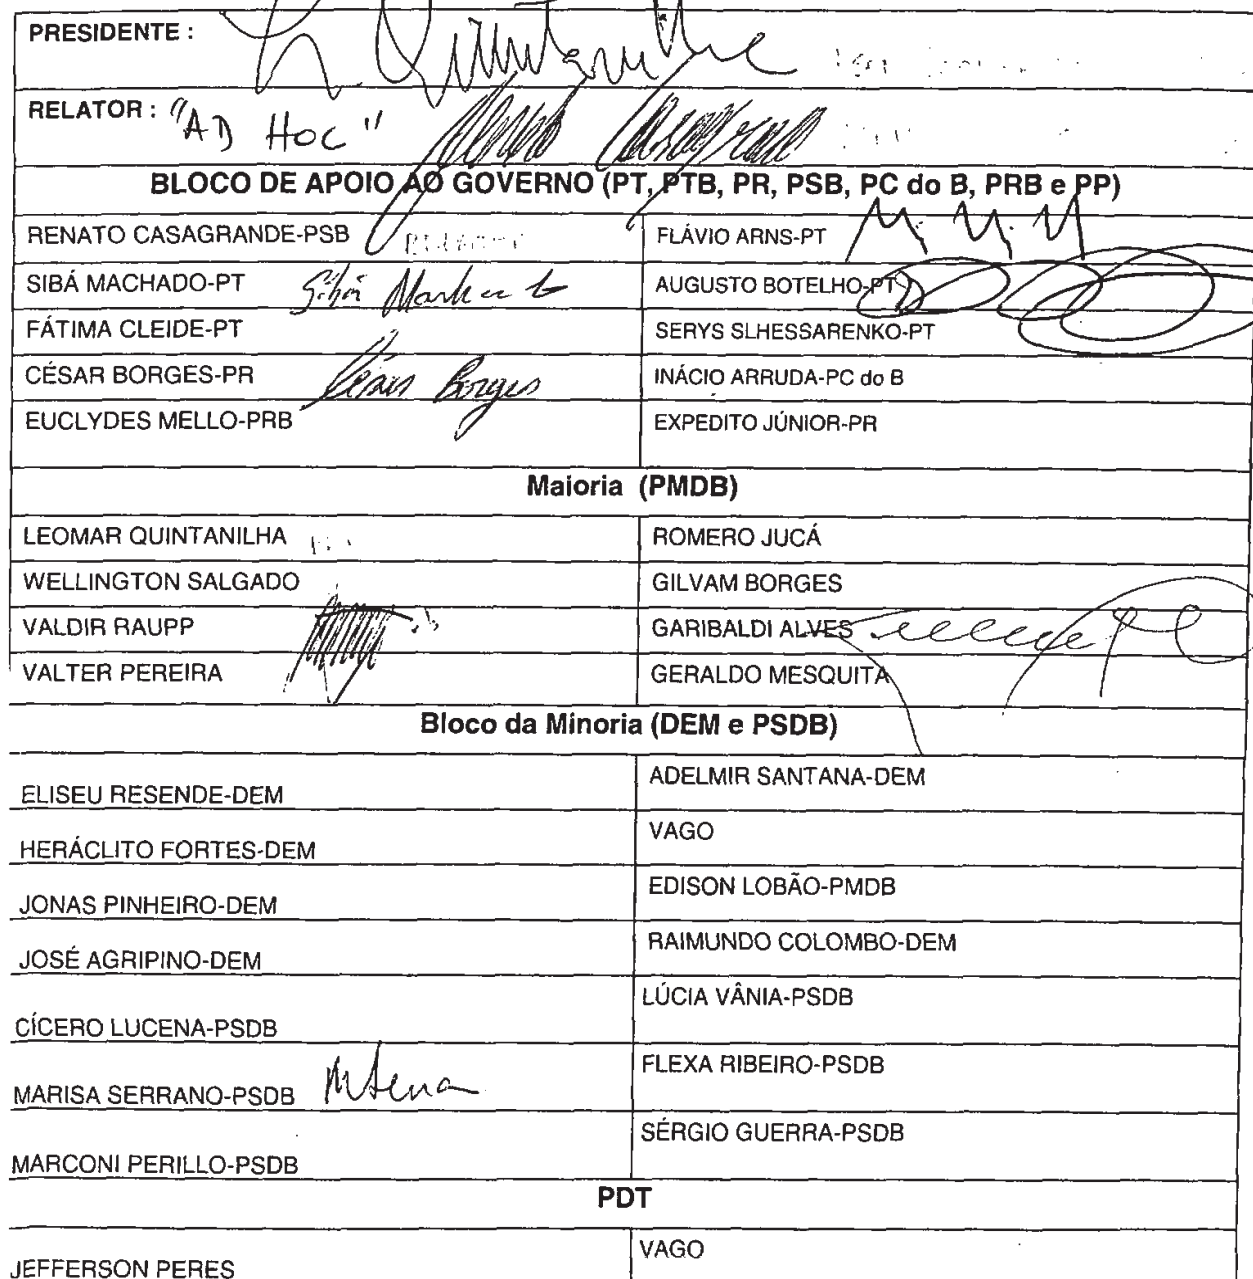 PRESIDENTE :
RELATOR : "AD HOC"
BLOCO DE APOIO AO GOVERNO (PT, PTB, PR, PSB, PC do B, PRB e PP)
RENATO CASAGRANDE-PSB
FLÁVIO ARNS-PT
SIBÁ MACHADO-PT Sibá Machado
AUGUSTO BOTELHO-PT
FÁTIMA CLEIDE-PT
SERYS SLHESSARENKO-PT
CÉSAR BORGES-PR César Borges
INÁCIO ARRUDA-PC do B
EUCLYDES MELLO-PRB
EXPEDITO JÚNIOR-PR
Maioria (PMDB)
LEOMAR QUINTANILHA
ROMERO JUCÁ
WELLINGTON SALGADO
GILVAM BORGES
VALDIR RAUPP
GARIBALDI ALVES
VALTER PEREIRA
GERALDO MESQUITA
Bloco da Minoria (DEM e PSDB)
ELISEU RESENDE-DEM
ADELMIR SANTANA-DEM
HERÁCLITO FORTES-DEM
VAGO
JONAS PINHEIRO-DEM
EDISON LOBÃO-PMDB
JOSÉ AGRIPINO-DEM
RAIMUNDO COLOMBO-DEM
CÍCERO LUCENA-PSDB
LÚCIA VÂNIA-PSDB
MARISA SERRANO-PSDB
FLEXA RIBEIRO-PSDB
MARCONI PERILLO-PSDB
SÉRGIO GUERRA-PSDB
PDT
JEFFERSON PERES
VAGO